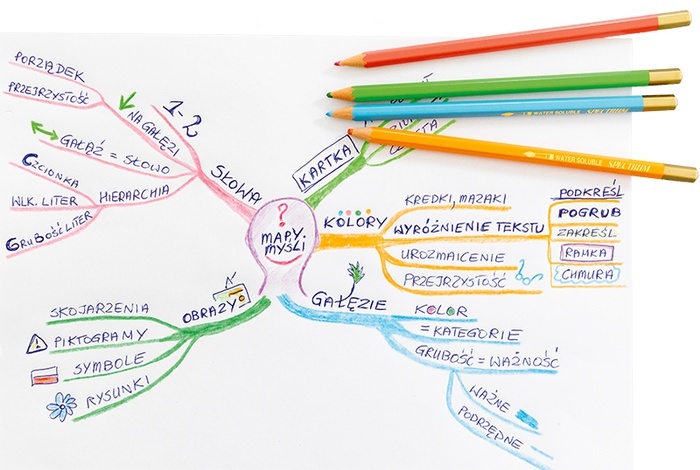 ?
MAPY
MYŚLI
SŁOWA
1-2
NA GAŁĘZI
PORZĄDEK
PRZEJRZYSTOŚĆ
GAŁĄŹ = SŁOWO
HIERARCHIA
CZCIONKA
WLK. LITER
GRUBOŚĆ LITER
KARTKA
KOLORY
KREDKI, MAZAKI
WYRÓŻNIENIE TEKSTU
PODKREŚL
POGRUB
ZAKREŚL
RAMKA
CHMURA
UROZMAICENIE
PRZEJRZYSTOŚĆ
GAŁĘZIE
KOLOR
= KATEGORIE
GRUBOŚĆ = WAŻNOŚĆ
WAŻNE
PODRZĘDNE
OBRAZY
SKOJARZENIA
PIKTOGRAMY
SYMBOLE
RYSUNKI
WATER SOLUBLE SPECTRUM
WATER SOLUBLE SPECTRUM